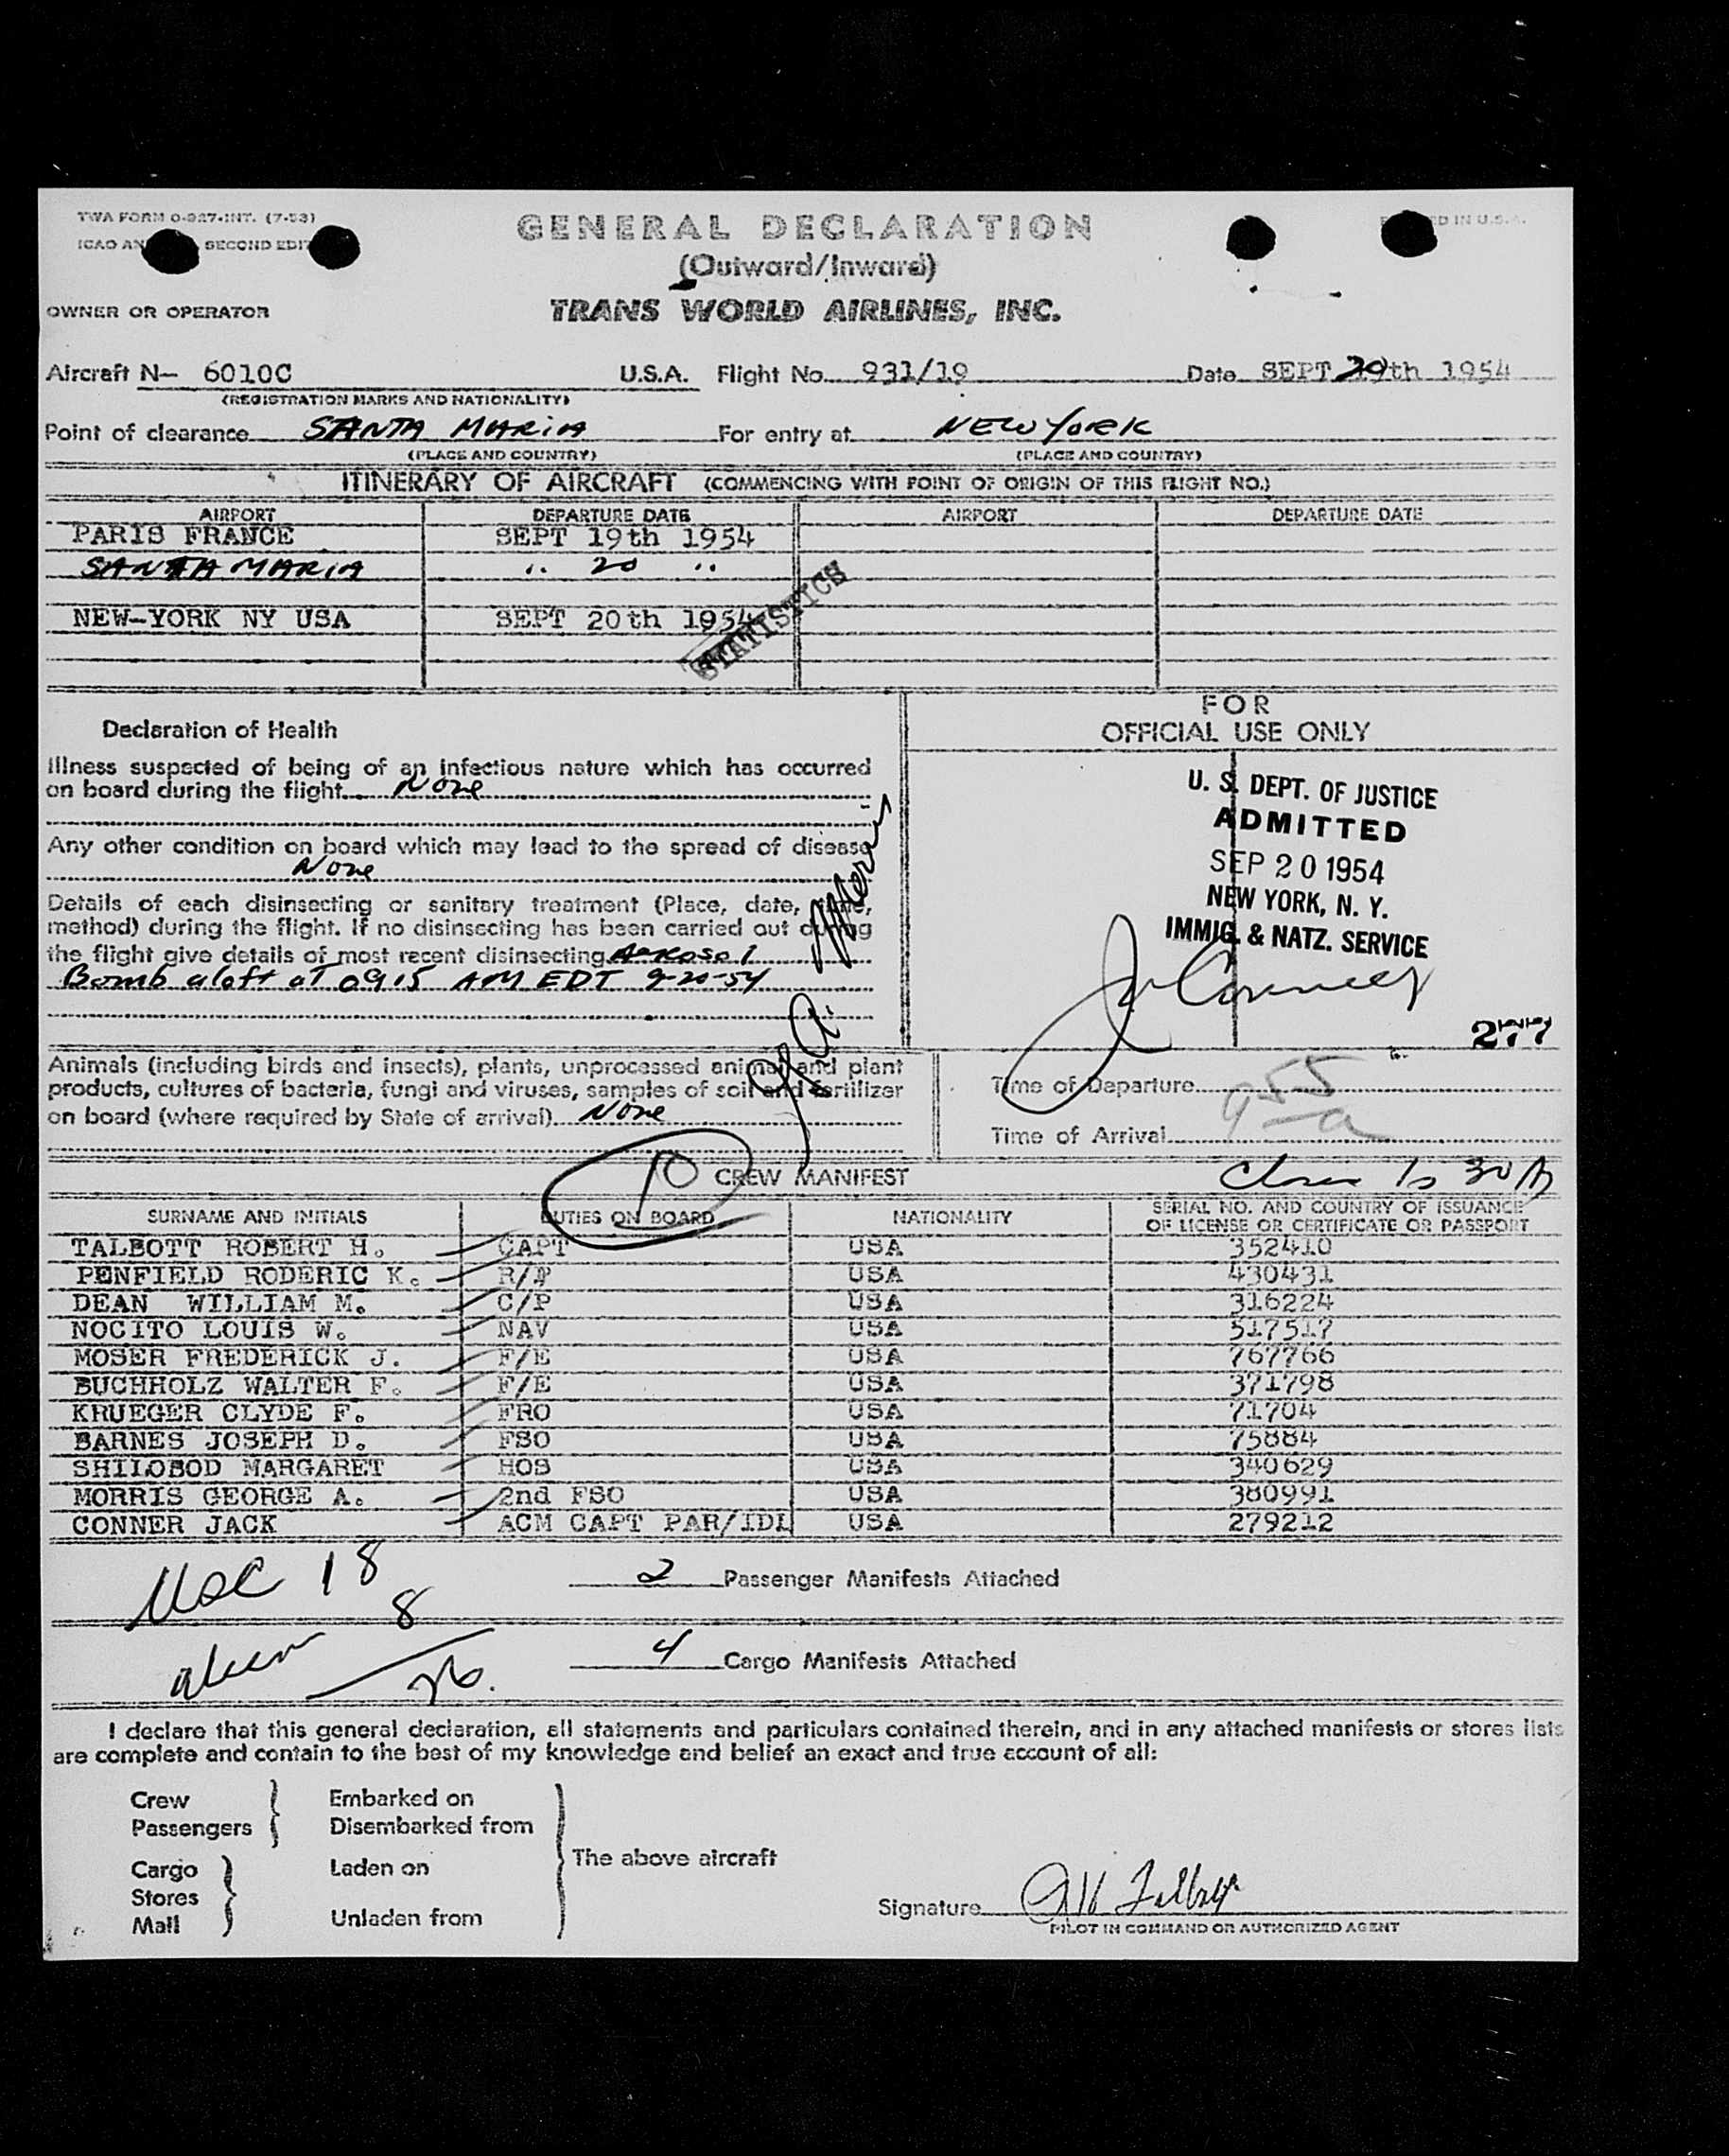 TWA FORM O-927-INT. (7-53)
ICAO AN SECOND EDIT
D IN U.S.A.
GENERAL DECLARATION
(Outward/Inward)
OWNER OR OPERATOR
TRANS WORLD AIRLINES, INC.
Aircraft N- 6010C U.S.A. Flight No. 931/19 Date SEPT 20th 1954
(REGISTRATION MARKS AND NATIONALITY)
Point of clearance SANTA MARIA For entry at NEW YORK
(PLACE AND COUNTRY) (PLACE AND COUNTRY)
ITINERARY OF AIRCRAFT (COMMENCING WITH POINT OF ORIGIN OF THIS FLIGHT NO.)
AIRPORT DEPARTURE DATE AIRPORT DEPARTURE DATE
PARIS FRANCE SEPT 19th 1954
SANTA MARIA " 20 "
NEW-YORK NY USA SEPT 20th 1954
STATISTICS
Declaration of Health
Illness suspected of being of an infectious nature which has occurred
on board during the flight None
Any other condition on board which may lead to the spread of disease
None
Details of each disinsecting or sanitary treatment (Place, date, time,
method) during the flight. If no disinsecting has been carried out during
the flight give details of most recent disinsecting Aerosol
Bomb aloft at 0915 AM EDT 9-20-54
G.A. Morris
FOR
OFFICIAL USE ONLY
U. S. DEPT. OF JUSTICE
ADMITTED
SEP 20 1954
NEW YORK, N. Y.
IMMIG. & NATZ. SERVICE
277
Animals (including birds and insects), plants, unprocessed animal and plant
products, cultures of bacteria, fungi and viruses, samples of soil and fertilizer
on board (where required by State of arrival) None
Time of Departure
955
a
Time of Arrival
10 CREW MANIFEST
SURNAME AND INITIALS DUTIES ON BOARD NATIONALITY SERIAL NO. AND COUNTRY OF ISSUANCE
OF LICENSE OR CERTIFICATE OR PASSPORT
TALBOTT ROBERT H. CAPT USA 352410
PENFIELD RODERIC K. R/P USA 430431
DEAN WILLIAM M. C/P USA 316224
NOCITO LOUIS W. NAV USA 517517
MOSER FREDERICK J. F/E USA 767766
BUCHHOLZ WALTER F. F/E USA 371798
KRUEGER CLYDE F. FRO USA 71704
BARNES JOSEPH D. FSO USA 75884
SHILOBOD MARGARET HOS USA 340629
MORRIS GEORGE A. 2nd FSO USA 380991
CONNER JACK ACM CAPT PAR/IDL USA 279212
USC 18
2 Passenger Manifests Attached
8
alien
26.
4 Cargo Manifests Attached
I declare that this general declaration, all statements and particulars contained therein, and in any attached manifests or stores lists
are complete and contain to the best of my knowledge and belief an exact and true account of all:
Crew Embarked on
Passengers Disembarked from
The above aircraft
Cargo Laden on
Stores
Mail Unladen from
Signature RH Talbott
PILOT IN COMMAND OR AUTHORIZED AGENT